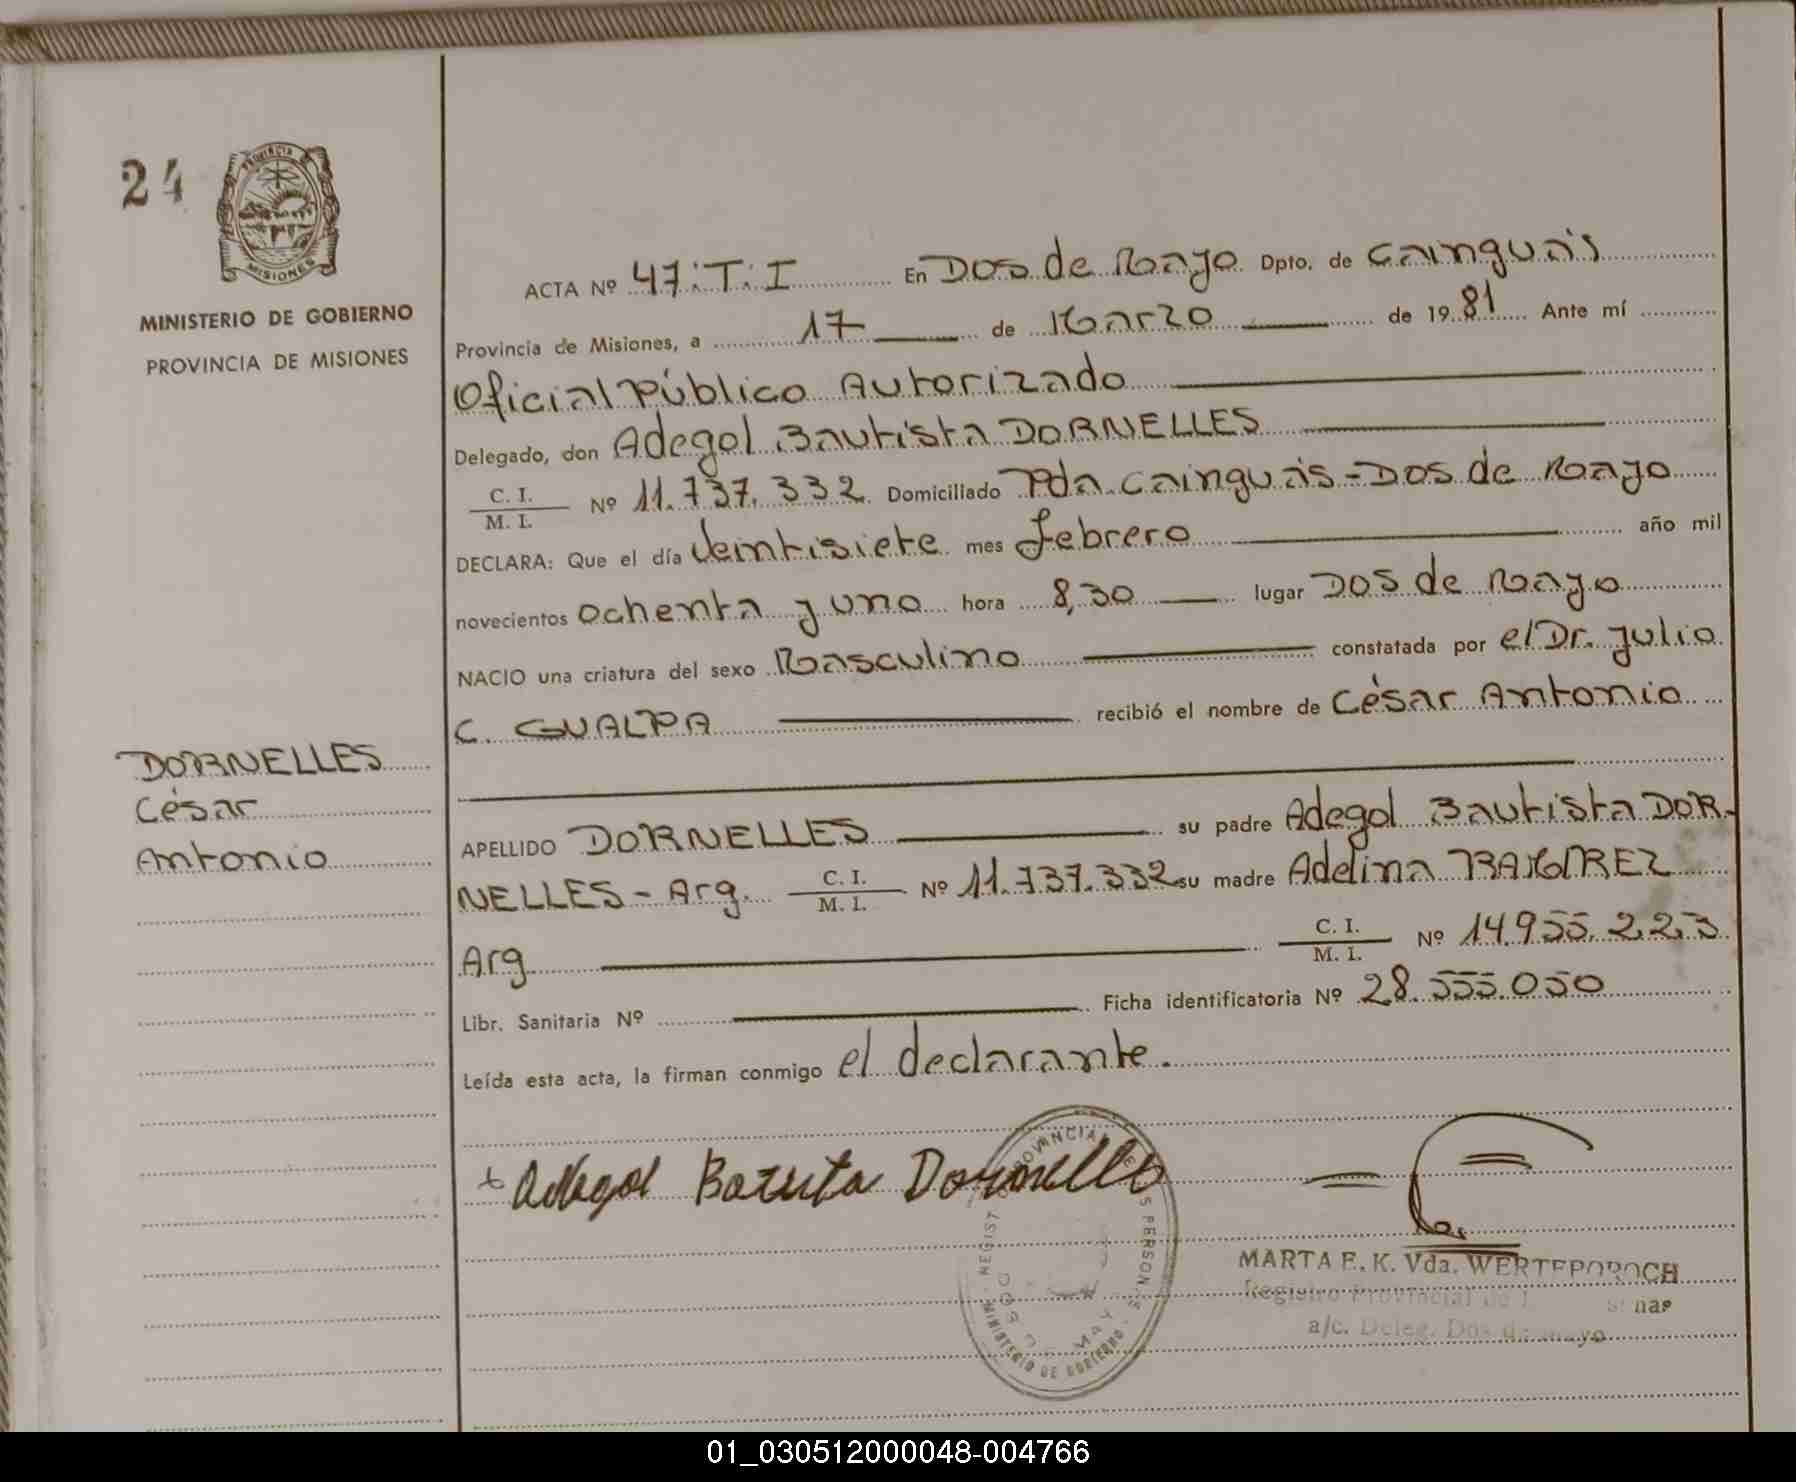 24
PROVINCIA DE
MISIONES
MINISTERIO DE GOBIERNO
PROVINCIA DE MISIONES
DORNELLES
César
Antonio
ACTA Nº 47:T:I En Dos de Mayo Dpto. de Cainguás
Provincia de Misiones, a 17 de Marzo de 1981 Ante mí
Oficial Público Autorizado
Delegado, don Adegol Bautista DORNELLES
C. I.
M. I. Nº 11.737.332 Domiciliado Pda. Cainguás-Dos de Mayo
DECLARA: Que el día Veintisiete mes Febrero año mil
novecientos ochenta y uno hora 8,30 lugar Dos de Mayo
NACIO una criatura del sexo Masculino constatada por el Dr. Julio
C. GUALPA recibió el nombre de César Antonio
APELLIDO DORNELLES su padre Adegol Bautista DOR-
NELLES - Arg. C. I. M. I. Nº 11.737.332 su madre Adelina RAMIREZ
Arg C. I. M. I. Nº 14.955.223
Libr. Sanitaria Nº Ficha identificatoria Nº 28.555.050
Leída esta acta, la firman conmigo el declarante.
Adegol Batista Dornelles
PERSONAS
MINISTERIO DE GOBIERNO
MARTA E. K. Vda. WERTEPOROCH
Registro Provincial de
a/c. Deleg. Dos de Mayo
01_030512000048-004766